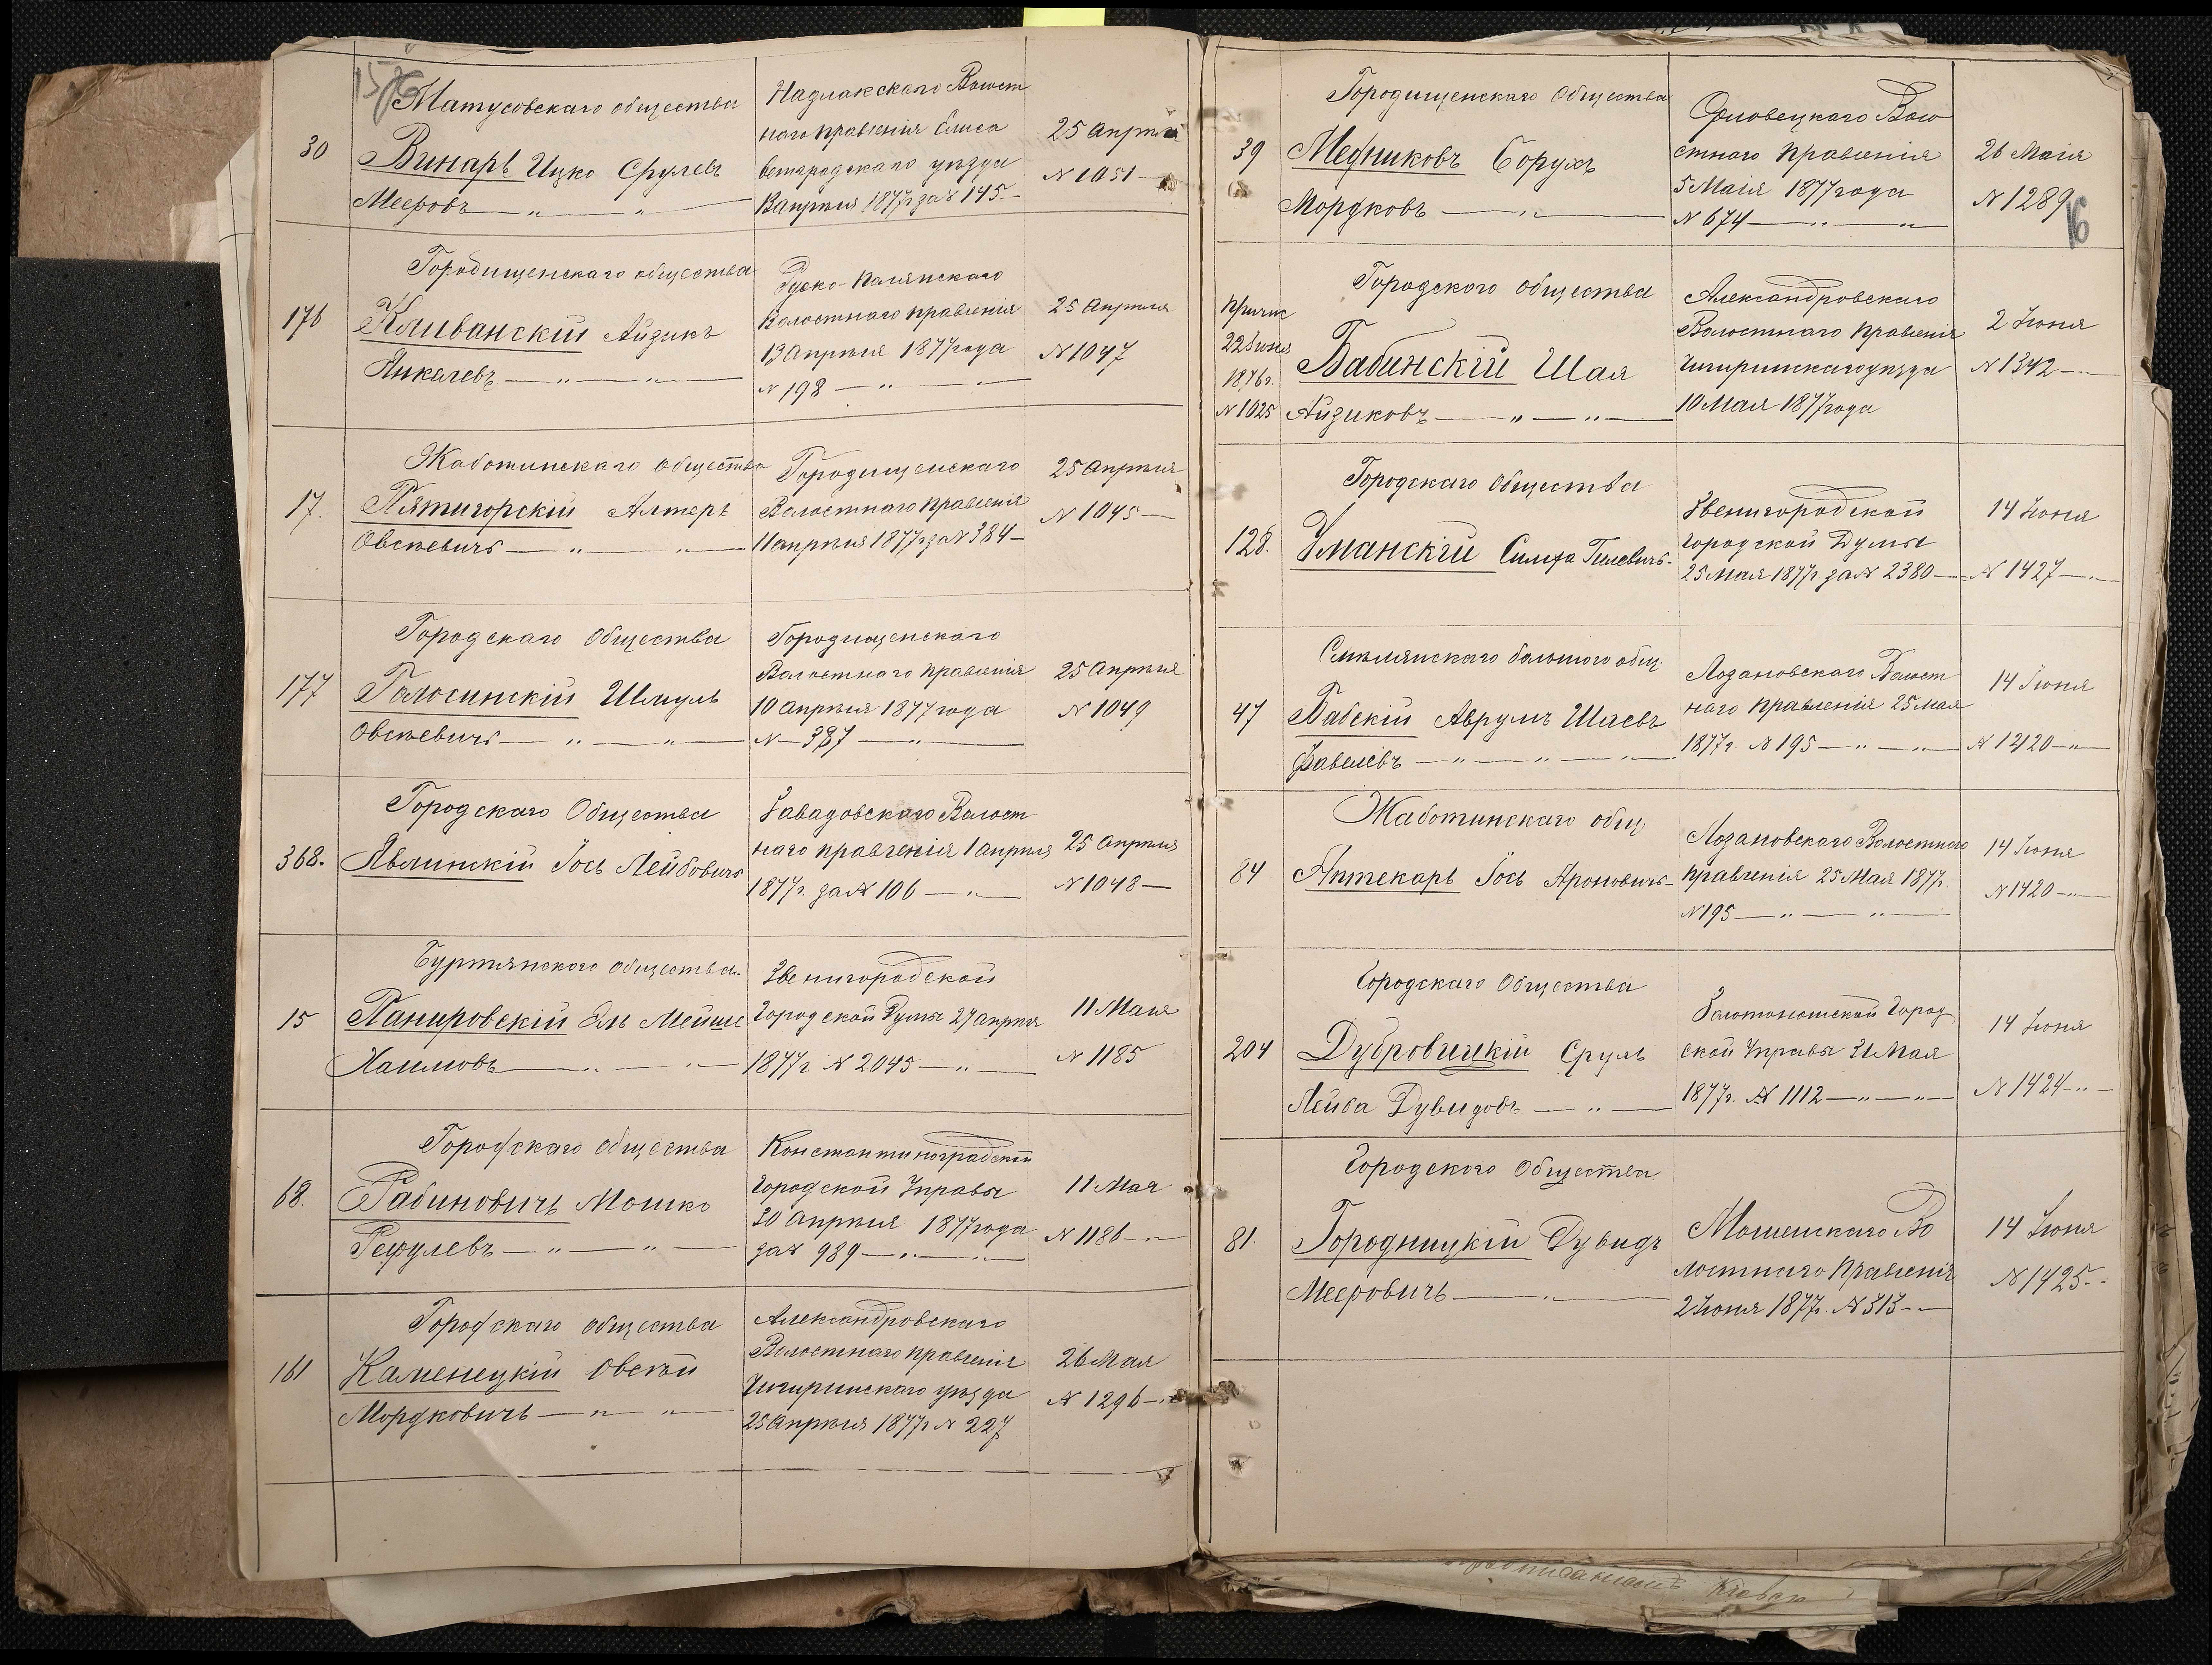 15
Матусовскаго общества
30
Винарь Ицко Срулевъ
Мееровъ — „ — „ —
Надлакскаго Волост
наго правленія Елиса
ветградскаго уѣзда
1877г за № 145. –
25 Апрѣля
№ 1051 —
Городищенскаго общества
176
Кливанскій Айзикъ
Янкелевъ — „ — „ —
Руско-Полянскаго
Волостнаго правленія
13 Апрѣля 1877 года
№ 198 — „ —
25 Апрѣля
№ 1047
Жаботинскаго общества
17.
Пятигорскій Алтеръ
Овсѣевичъ — „ — „ —
Городищенскаго
Волостнаго правленія
11 апрѣля 1877г за № 384 –
25 Апрѣля
№ 1045 —
Городскаго Общества
177
Голосинскій Шмуль
Овсѣевичъ — „ — „ —
Городищенскаго
Волостнаго правленія
10 Апрѣля 1877 года
№ — 387 — „ —
25 Апрѣля
№ 1049
Городскаго Общества
368.
Явлинскій Іось Лейбовичъ
Завадовскаго Волост
наго правленія 1 апрѣля
1877г. за № 106 — „ —
25 Апрѣля
№ 1048 —
Буртянскаго общества.
15
Панировскій Эль Мейше
Хаимовъ — „ — „ —
Звенигородской
Городской Думы 27 апрѣля
1877г № 2045 — „ —
11 Мая
№ 1185
Городскаго общества
68.
Рабиновичъ Мошко
Рефулевъ — „ — „ —
Константиноградской
Городской Управы
30 Апрѣля 1877 года
за № 989 — „ —
11 Мая
№ 1186 — „ —
Городскаго общества
161
Каменецкій Овсѣй
Мордковичъ — „ — „ —
Александровскаго
Волостнаго правленія
Чигиринскаго уѣзда
25 Апрѣля 1877г № 227
26 Мая
№ 1296 —
16
Городищенскаго Общества
39
Медниковъ Борухъ
Мордковъ — „ —
Орловецкаго Воло
стнаго Правленія
5 Маія 1877 года
№ 674 — „ — „ —
26 Маія
№ 1289
Городского общества
Причис
22 Іюня
1876г.
№ 1025
Бабинскій Шая
Айзиковъ — „ — „ —
Александровскаго
Волостнаго Правленія
Чигиринскаго уѣзда
10 Мая 1877 года
2 Іюня
№ 1342 —
Городскаго Общества
128.
Уманскій Симха Гилевичъ –
Звенигородской
Городской Думы
25 Мая 1877г за № 2380 —
14 Іюня
№ 1427 —
Смѣлянскаго большого общ.
47
Бабскій Аврумъ Шаевъ
Фавелевъ — „ — „ — „ —
Лозановскаго Волост
наго Правленія 25 Мая
1877г. № 195 — „ — „ —
14 Іюня
№ 1420 — „ —
Жаботинскаго общ.
84
Аптекарь Іось Ароновичъ –
Лозановскаго Волостного
Правленія 25 Мая 1877г.
№ 195 — „ — „ —
14 Іюня
№ 1420 — „ —
Городскаго Общества
204
Дубровицкій Сруль
Лейба Дувидовъ — „ —
Золотоношской Город
ской Управы 31 Мая
1877г. № 1112 — „ — „ —
14 Іюня
№ 1424 — „ —
Городского Общества.
81.
Городницкій Дувидъ
Мееровичъ — „ —
Мошенскаго Во
лостнаго Правленія
2 Іюня 1877г. № 313 – —
14 Іюня
№ 1425. –